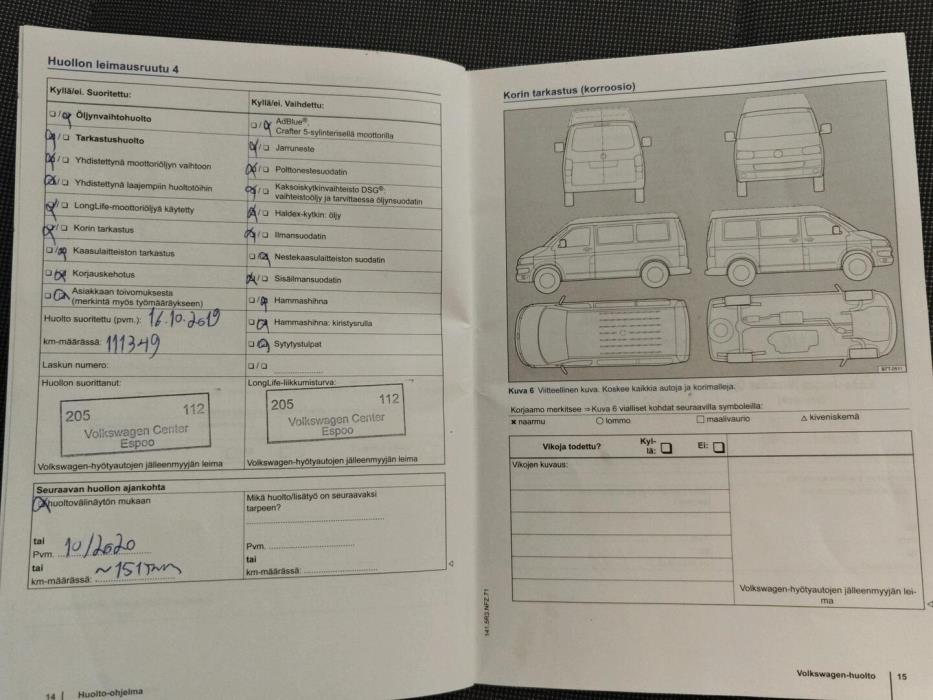 Huollon leimausruutu 4
Kyllä/ei. Suoritettu:
☐/☒ Öljynvaihtohuolto
☒/☐ Tarkastushuolto
☒/☐ Yhdistettynä moottoriöljyn vaihtoon
☒/☐ Yhdistettynä laajempiin huoltotöihin
☒/☐ LongLife-moottoriöljyä käytetty
☒/☐ Korin tarkastus
☐/☒ Kaasulaitteiston tarkastus
☐/☒ Korjauskehotus
☐/☒ Asiakkaan toivomuksesta
(merkintä myös työmääräykseen)
Huolto suoritettu (pvm.): 16.10.2019
km-määrässä: 111349
Laskun numero:
Huollon suorittanut:
205 112
Volkswagen Center
Espoo
Volkswagen-hyötyautojen jälleenmyyjän leima
Kyllä/ei. Vaihdettu:
☐/☒ AdBlue®:
Crafter 5-sylinterisellä moottorilla
☒/☐ Jarruneste
☒/☐ Polttonestesuodatin
☒/☐ Kaksoiskytkinvaihteisto DSG®:
vaihteistoöljy ja tarvittaessa öljynsuodatin
☒/☐ Haldex-kytkin: öljy
☒/☐ Ilmansuodatin
☐/☒ Nestekaasulaitteiston suodatin
☒/☐ Sisäilmansuodatin
☐/☒ Hammashihna
☐/☒ Hammashihna: kiristysrulla
☐/☒ Sytytystulpat
☐/☐
LongLife-liikkumisturva:
205 112
Volkswagen Center
Espoo
Volkswagen-hyötyautojen jälleenmyyjän leima
Seuraavan huollon ajankohta
☒ huoltovälinäytön mukaan
tai
Pvm. 10/2020
tai
km-määrässä: ~151
Mikä huolto/lisätyö on seuraavaksi
tarpeen?
Pvm.
tai
km-määrässä:
14 | Huolto-ohjelma
Korin tarkastus (korroosio)
Kuva 6 Viitteellinen kuva. Koskee kaikkia autoja ja korimalleja.
Korjaamo merkitsee ⇒ Kuva 6 vialliset kohdat seuraavilla symboleilla:
✖ naarmu ○ lommo □ maalivaurio △ kiveniskemä
Vikoja todettu? Kyl-
lä: ☐ Ei: ☐
Vikojen kuvaus:
Volkswagen-hyötyautojen jälleenmyyjän lei-
ma
141.5R3.NFZ.71
Volkswagen-huolto | 15